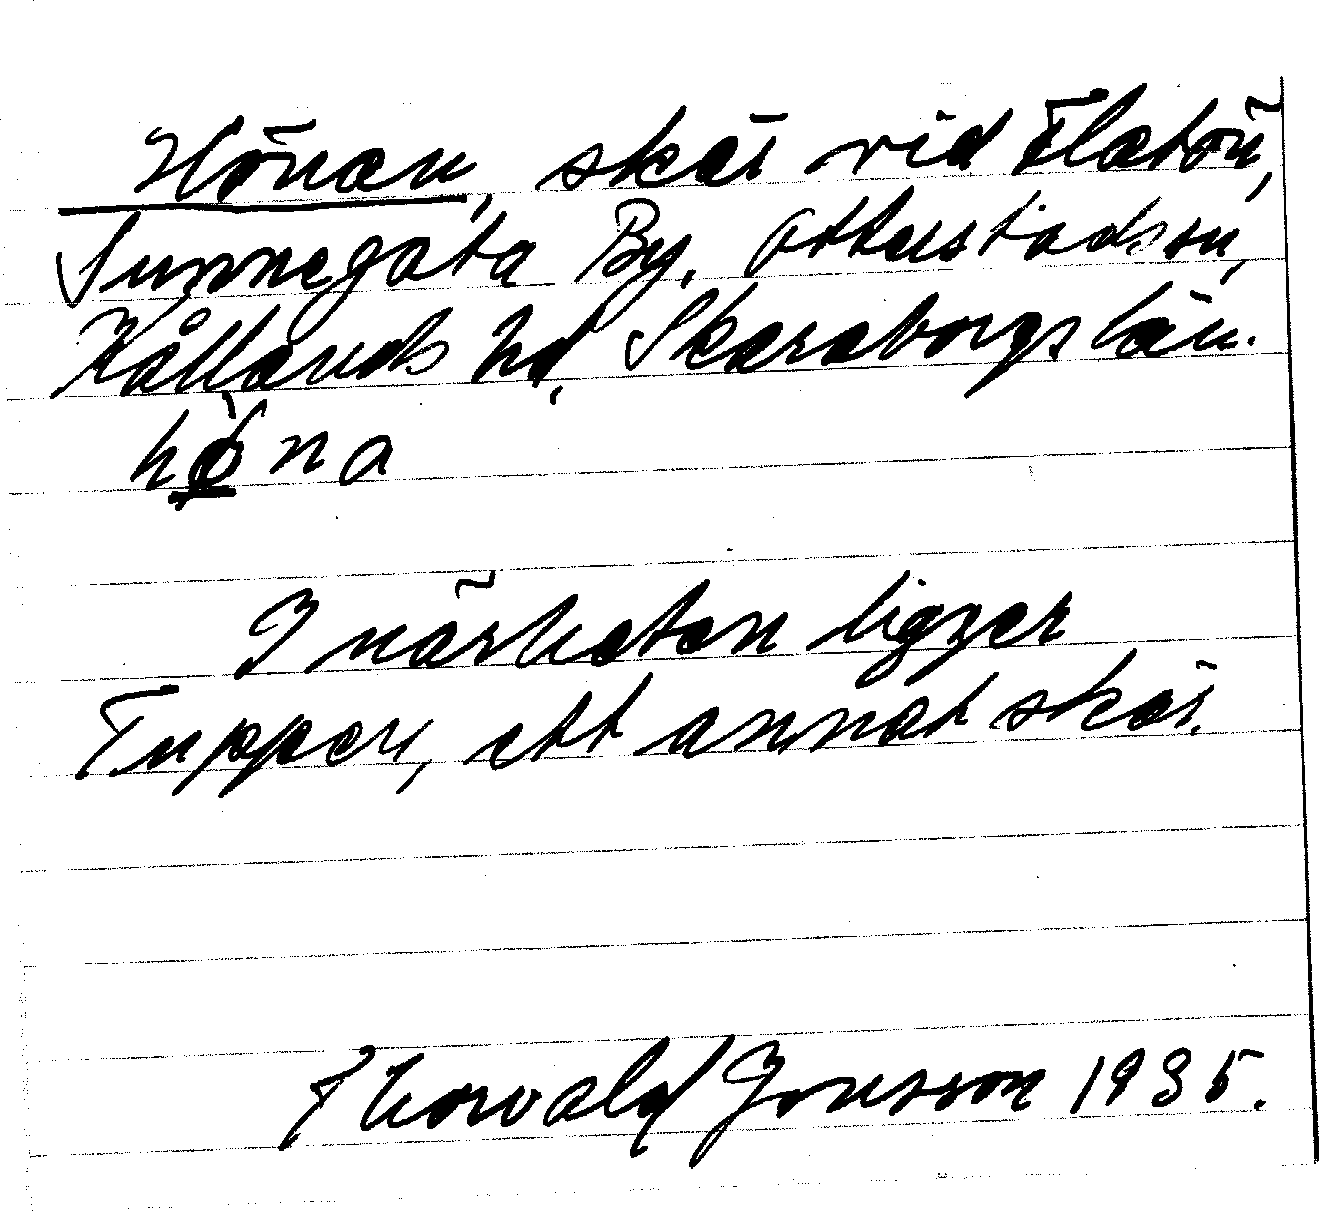 Hönan, skär vid Flatön,
Sunnegåta By. Otterstadssn,
Kållands hd, Skaraborgs län.
hö̀na
I närheten ligger
Tuppen, ett annat skär.
Thorvald Jonsson 1935.